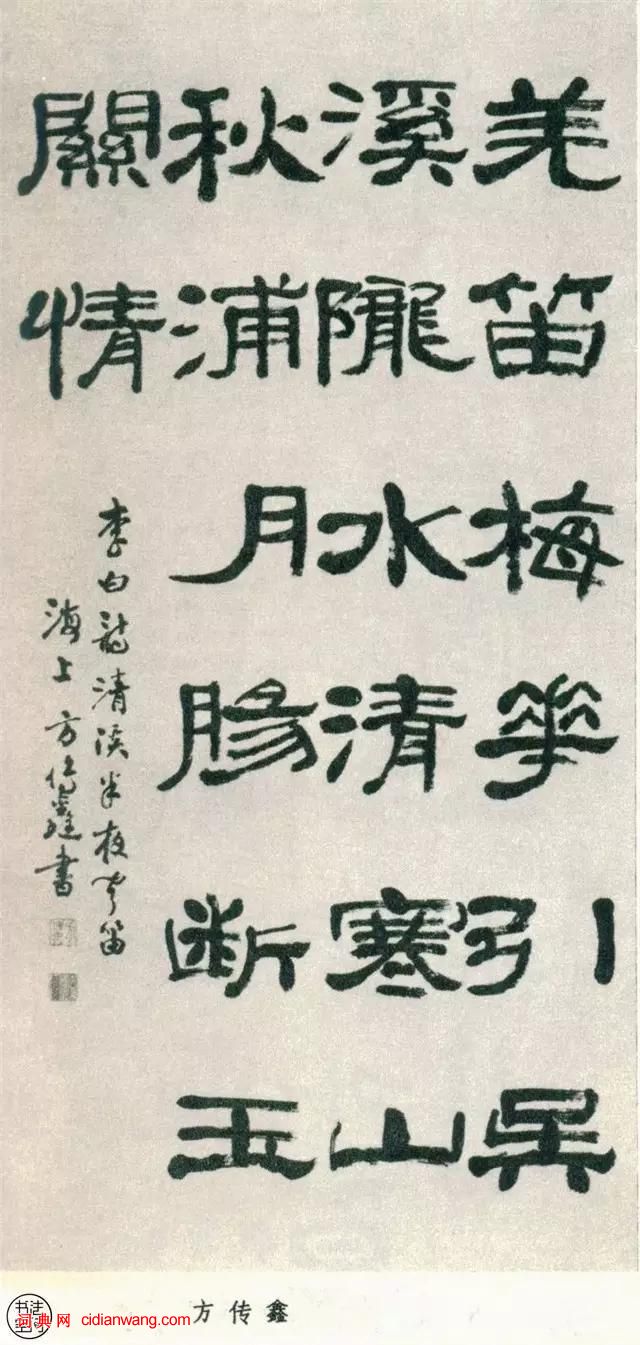 羌笛梅華引吳
溪隴水清寒山
秋浦月腸断玉
關情
李白清溪半夜聞笛
海上方傳鑫書
方传鑫
词典网 cidianwang.com